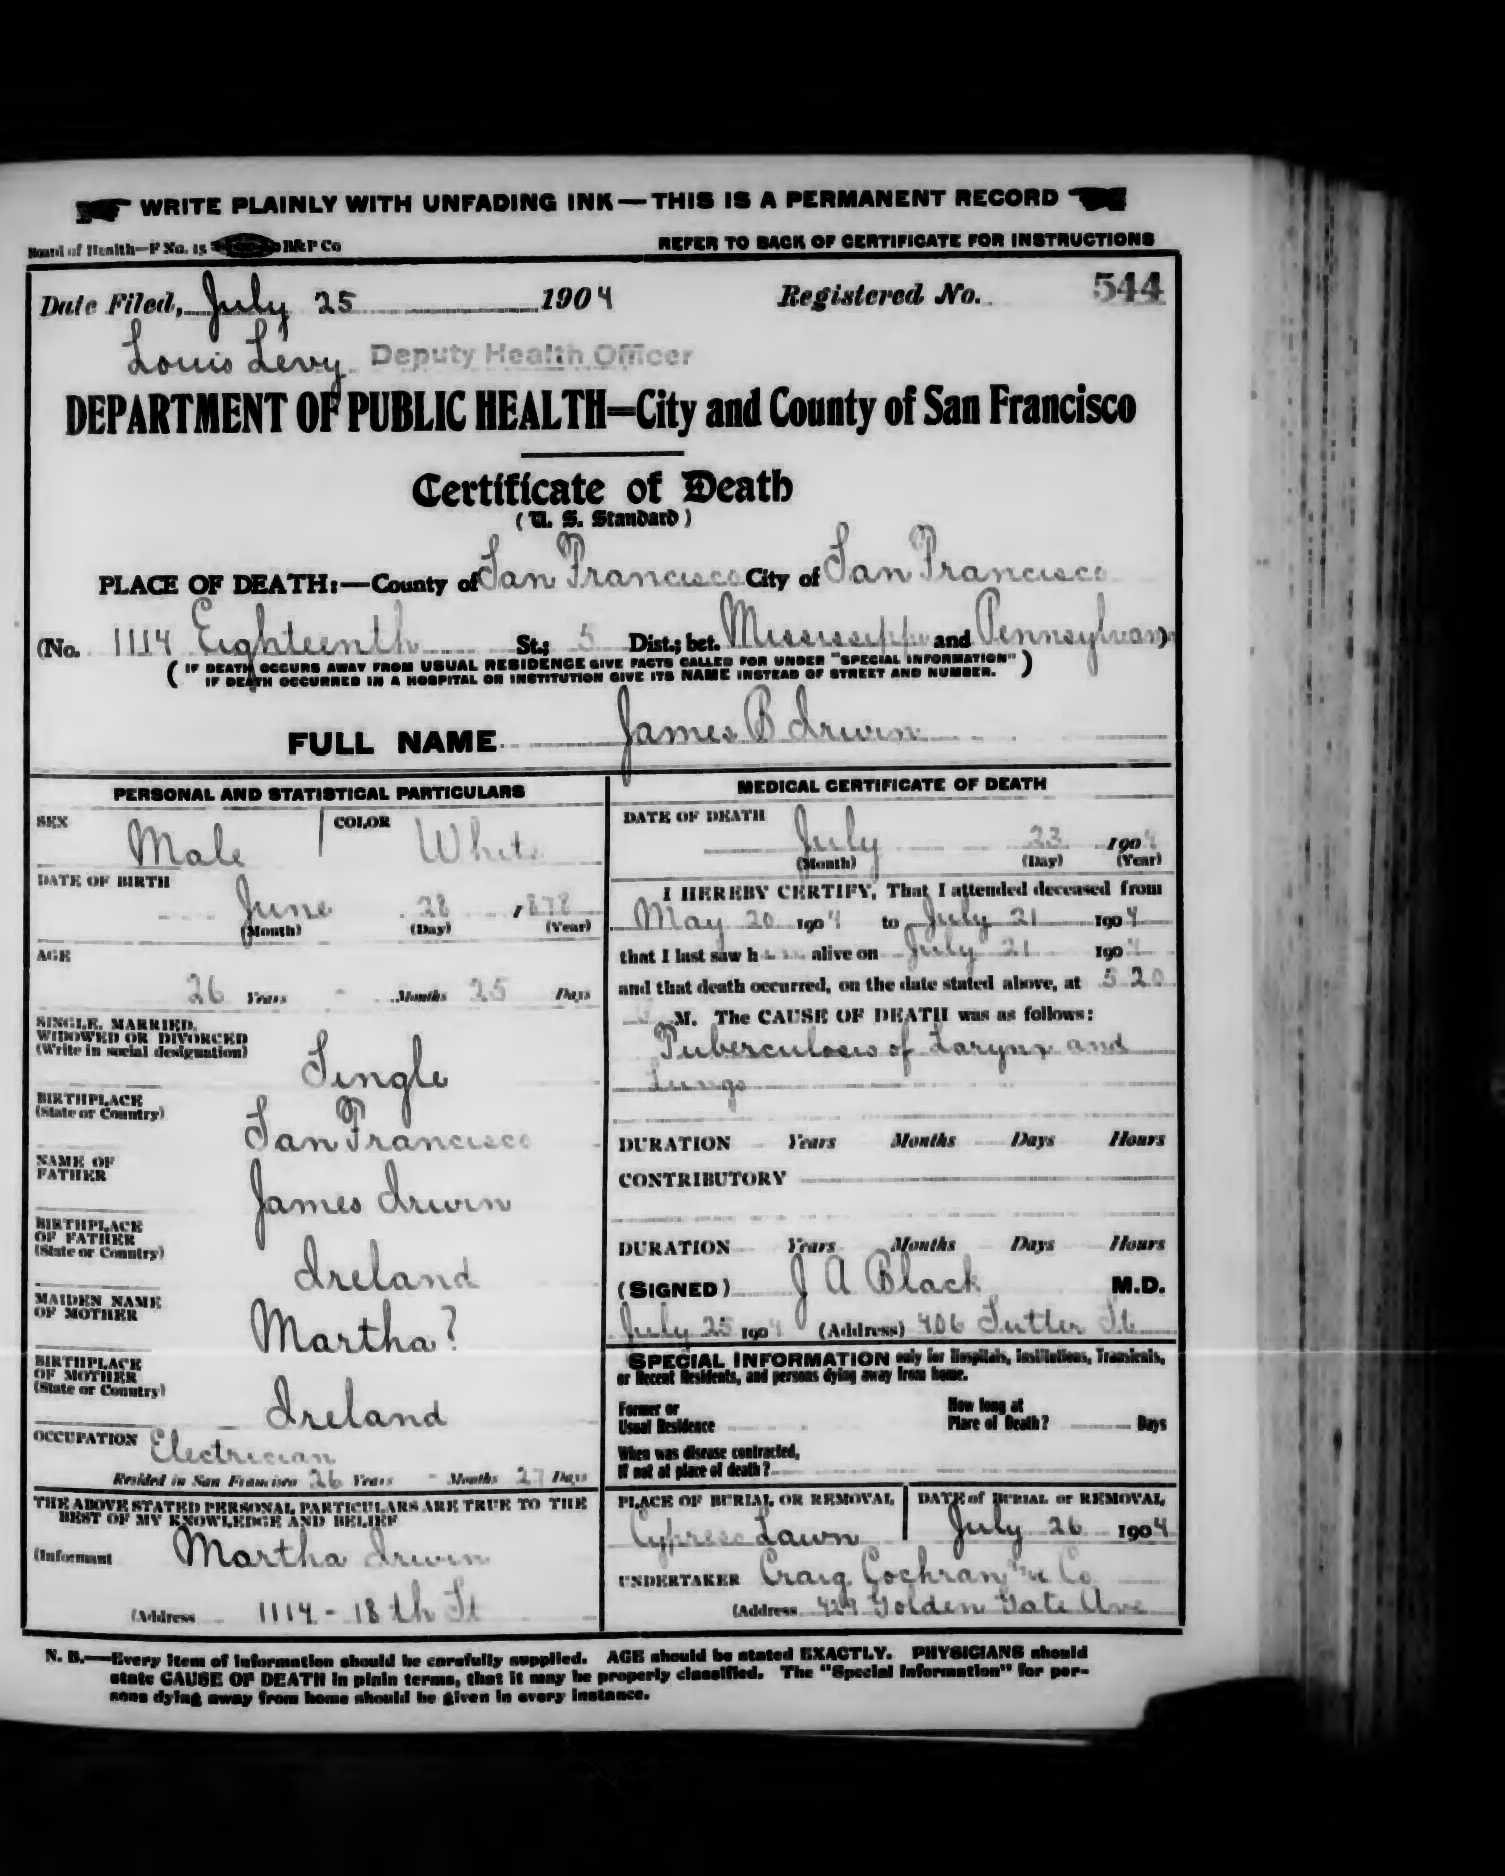 WRITE PLAINLY WITH UNFADING INK—THIS IS A PERMANENT RECORD
Board of Health—F No. 15 B&P Co REFER TO BACK OF CERTIFICATE FOR INSTRUCTIONS
Date Filed, July 25 1904 Registered No. 544
Louis Levy Deputy Health Officer
DEPARTMENT OF PUBLIC HEALTH=City and County of San Francisco
Certificate of Death
(U. S. Standard)
PLACE OF DEATH:—County of San Francisco City of San Francisco
(No. 1114 Eighteenth St.; 5 Dist.; bet. Mississippi and Pennsylvania)
(IF DEATH OCCURS AWAY FROM USUAL RESIDENCE GIVE FACTS CALLED FOR UNDER "SPECIAL INFORMATION"
IF DEATH OCCURRED IN A HOSPITAL OR INSTITUTION GIVE ITS NAME INSTEAD OF STREET AND NUMBER.)
FULL NAME James B Irwin
PERSONAL AND STATISTICAL PARTICULARS
SEX Male COLOR White
DATE OF BIRTH
June 28, 1878
(Month) (Day) (Year)
AGE
26 Years - Months 25 Days
SINGLE, MARRIED,
WIDOWED OR DIVORCED
(Write in social designation) Single
BIRTHPLACE
(State or Country) San Francisco
NAME OF
FATHER James Irwin
BIRTHPLACE
OF FATHER
(State or Country) Ireland
MAIDEN NAME
OF MOTHER Martha?
BIRTHPLACE
OF MOTHER
(State or Country) Ireland
OCCUPATION Electrician
Resided in San Francisco 26 Years - Months 27 Days
THE ABOVE STATED PERSONAL PARTICULARS ARE TRUE TO THE
BEST OF MY KNOWLEDGE AND BELIEF
(Informant Martha Irwin
(Address 1114 - 18th St
MEDICAL CERTIFICATE OF DEATH
DATE OF DEATH
July 23 1904
(Month) (Day) (Year)
I HEREBY CERTIFY, That I attended deceased from
May 20 1904 to July 21 1904
that I last saw h alive on July 21 1904
and that death occurred, on the date stated above, at 5 20
M. The CAUSE OF DEATH was as follows:
Tuberculosis of Larynx and
Lungs
DURATION Years Months Days Hours
CONTRIBUTORY
DURATION Years Months Days Hours
(SIGNED) J A Black M.D.
July 25 1904 (Address) 406 Sutter St
SPECIAL INFORMATION only for Hospitals, Institutions, Transients,
or Recent Residents, and persons dying away from home.
Former or
Usual Residence
How long at
Place of Death? Days
When was disease contracted,
If not at place of death?
PLACE OF BURIAL OR REMOVAL
Cypress Lawn
DATE of BURIAL or REMOVAL
July 26 1904
UNDERTAKER Craig Cochran Co
(Address 429 Golden Gate Ave
N. B.—Every item of information should be carefully supplied. AGE should be stated EXACTLY. PHYSICIANS should
state CAUSE OF DEATH in plain terms, that it may be properly classified. The "Special Information" for per-
sons dying away from home should be given in every instance.